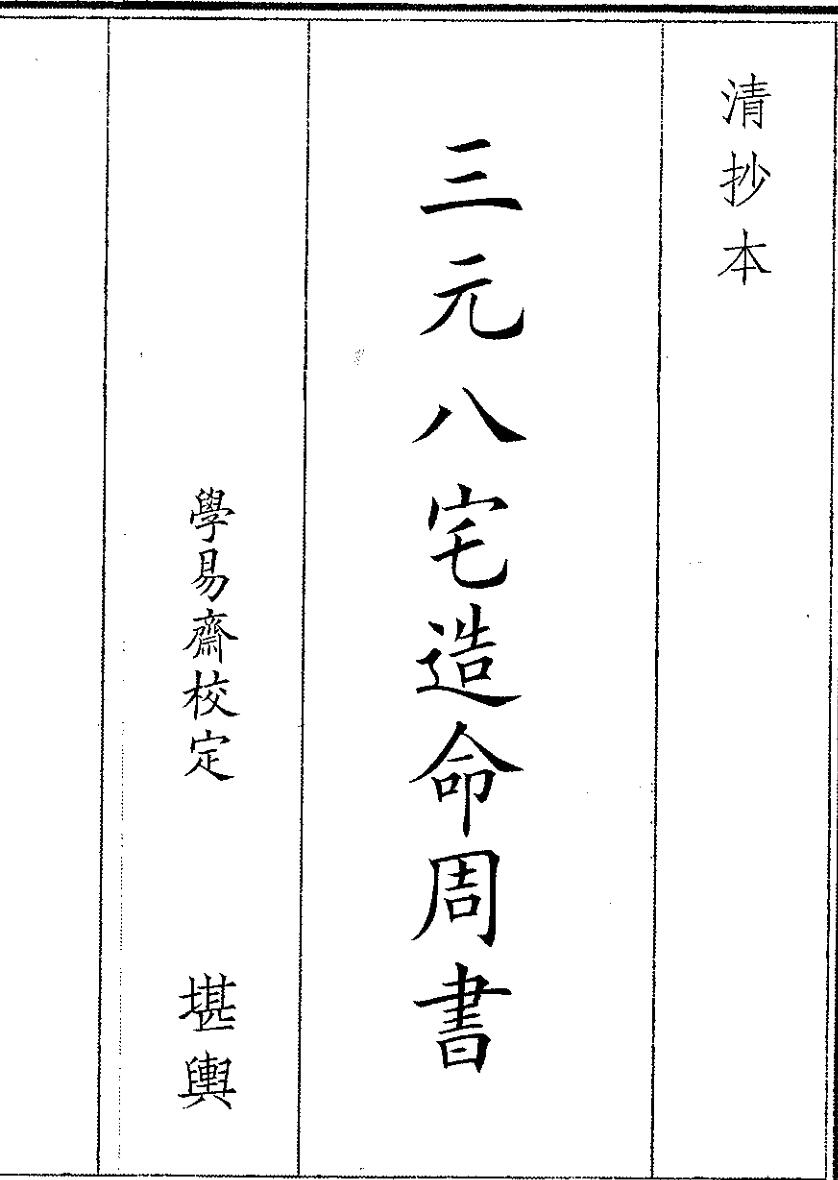 清抄本
三元八宅造命周書
學易齋校定 堪輿